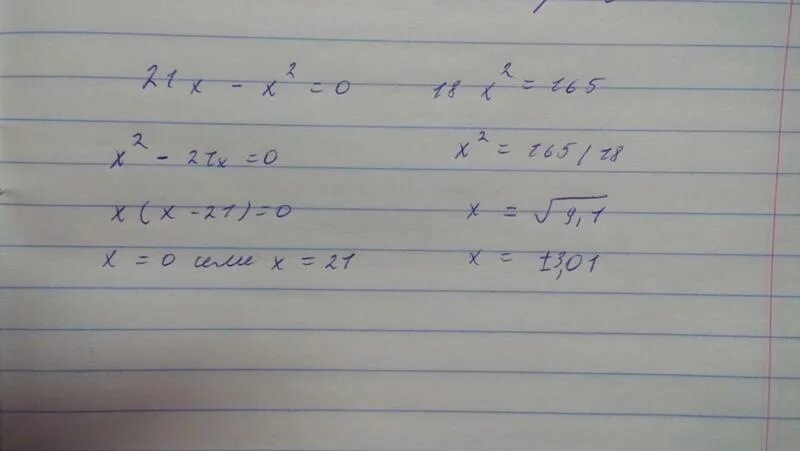 21x - x² = 0
x² - 21x = 0
x(x - 21) = 0
x = 0 или x = 21
18x² = 165
x² = 165/18
x = √9,1
x = ±3,01